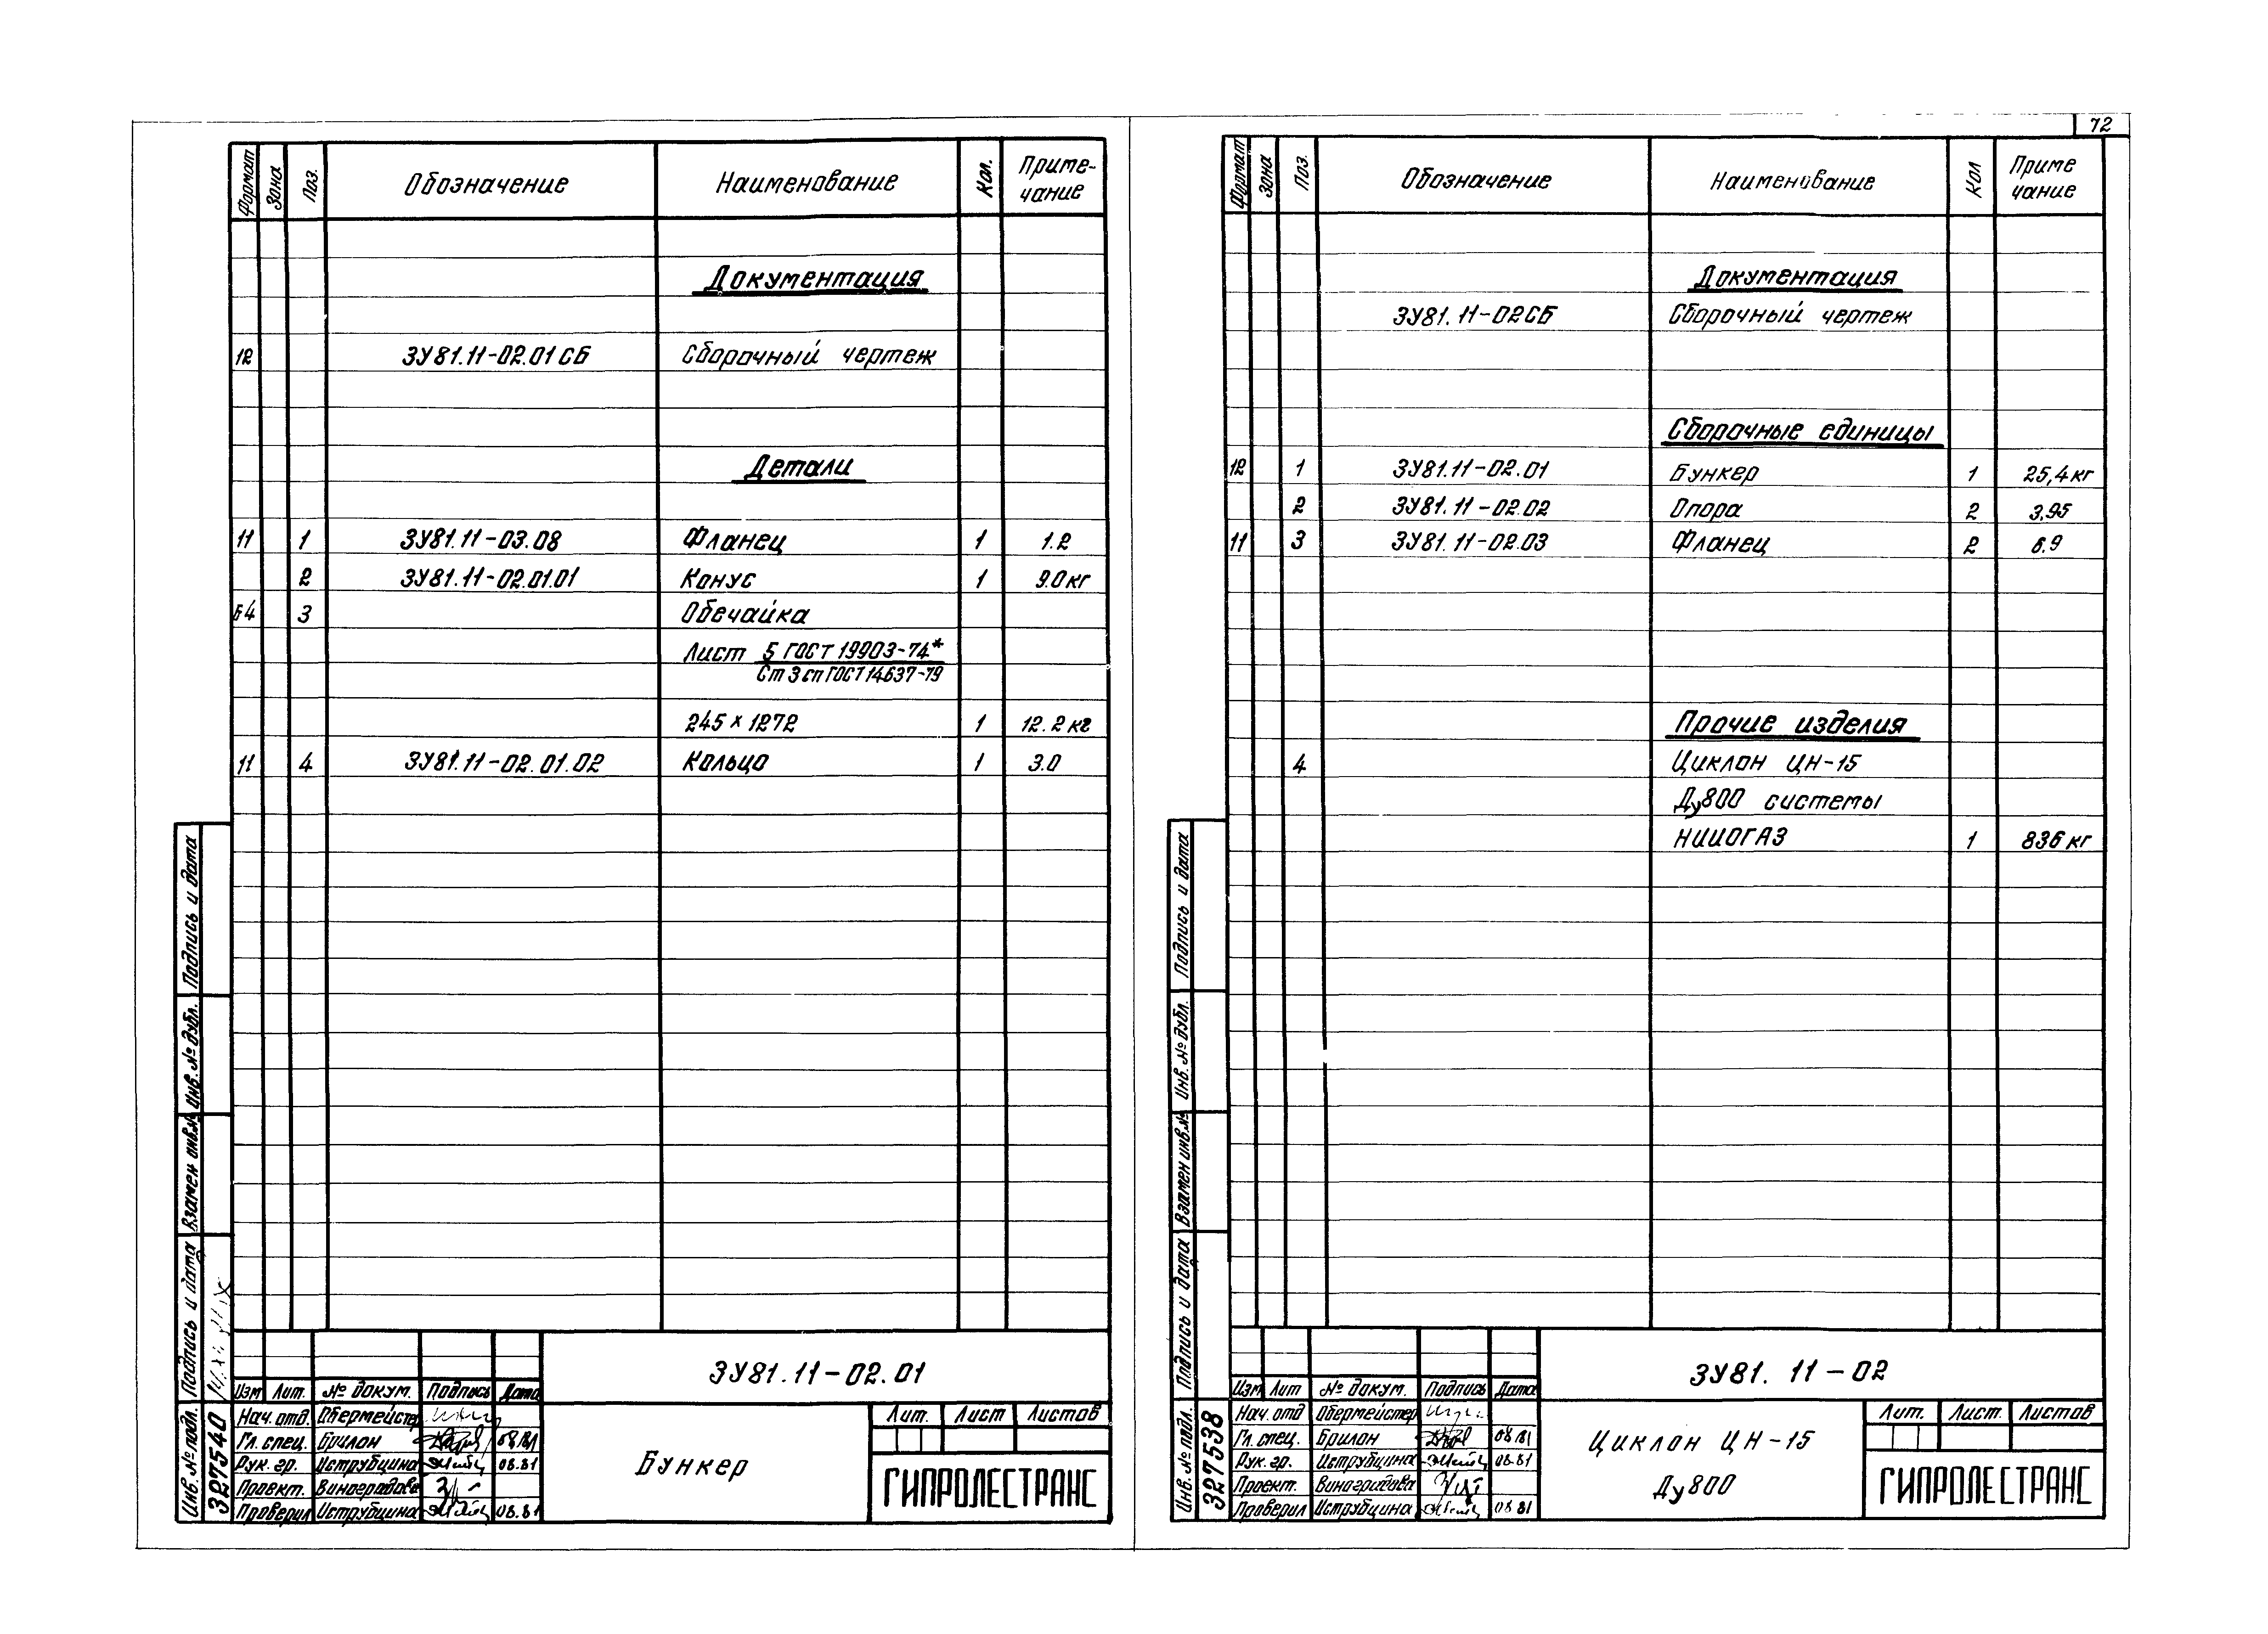 72
Формат Зона Поз. Обозначение Наименование Кол. Приме-
чание
Документация
12 ЗУ81.11-02.01СБ Сборочный чертеж
Детали
11 1 ЗУ81.11-03.08 Фланец 1 1.2
2 ЗУ81.11-02.01.01 Конус 1 9.0кг
Б4 3 Обечайка
Лист 5 ГОСТ 19903-74*
Ст 3 сп ГОСТ 14637-79
245 х 1272 1 12.2кг
11 4 ЗУ81.11-02.01.02 Кольцо 1 3.0
Подпись и дата
Инв. № дубл.
Взамен инв.№
Подпись и дата
Инв. № подл.
327540
ЗУ81.11-02.01
Изм Лит. № докум. Подпись Дата
Нач. отд. Обермейстер
Гл. спец. Брилон 08.81
Рук. гр. Иструбцина 08.81
Проект. Виноградова
Проверил Иструбцина 08.81
Бункер
Лит. Лист Листов
ГИПРОЛЕСТРАНС
Формат Зона Поз. Обозначение Наименование Кол Приме
чание
Документация
ЗУ81.11-02СБ Сборочный чертеж
Сборочные единицы
12 1 ЗУ81.11-02.01 Бункер 1 25,4кг
2 ЗУ81.11-02.02 Опора 2 3,95
11 3 ЗУ81.11-02.03 Фланец 2 6.9
Прочие изделия
4 Циклон ЦН-15
Ду800 системы
НИИОГАЗ 1 836кг
Подпись и дата
Инв. № дубл.
Взамен инв.№
Подпись и дата
Инв. № подл.
327538
ЗУ81.11-02
Изм Лит № докум. Подпись Дата
Нач. отд Обермейстер
Гл. спец. Брилон 08.81
Рук. гр. Иструбцина 08.81
Проект. Виноградова
Проверил Иструбцина 08 81
Циклон ЦН-15
Ду800
Лит. Лист Листов
ГИПРОЛЕСТРАНС